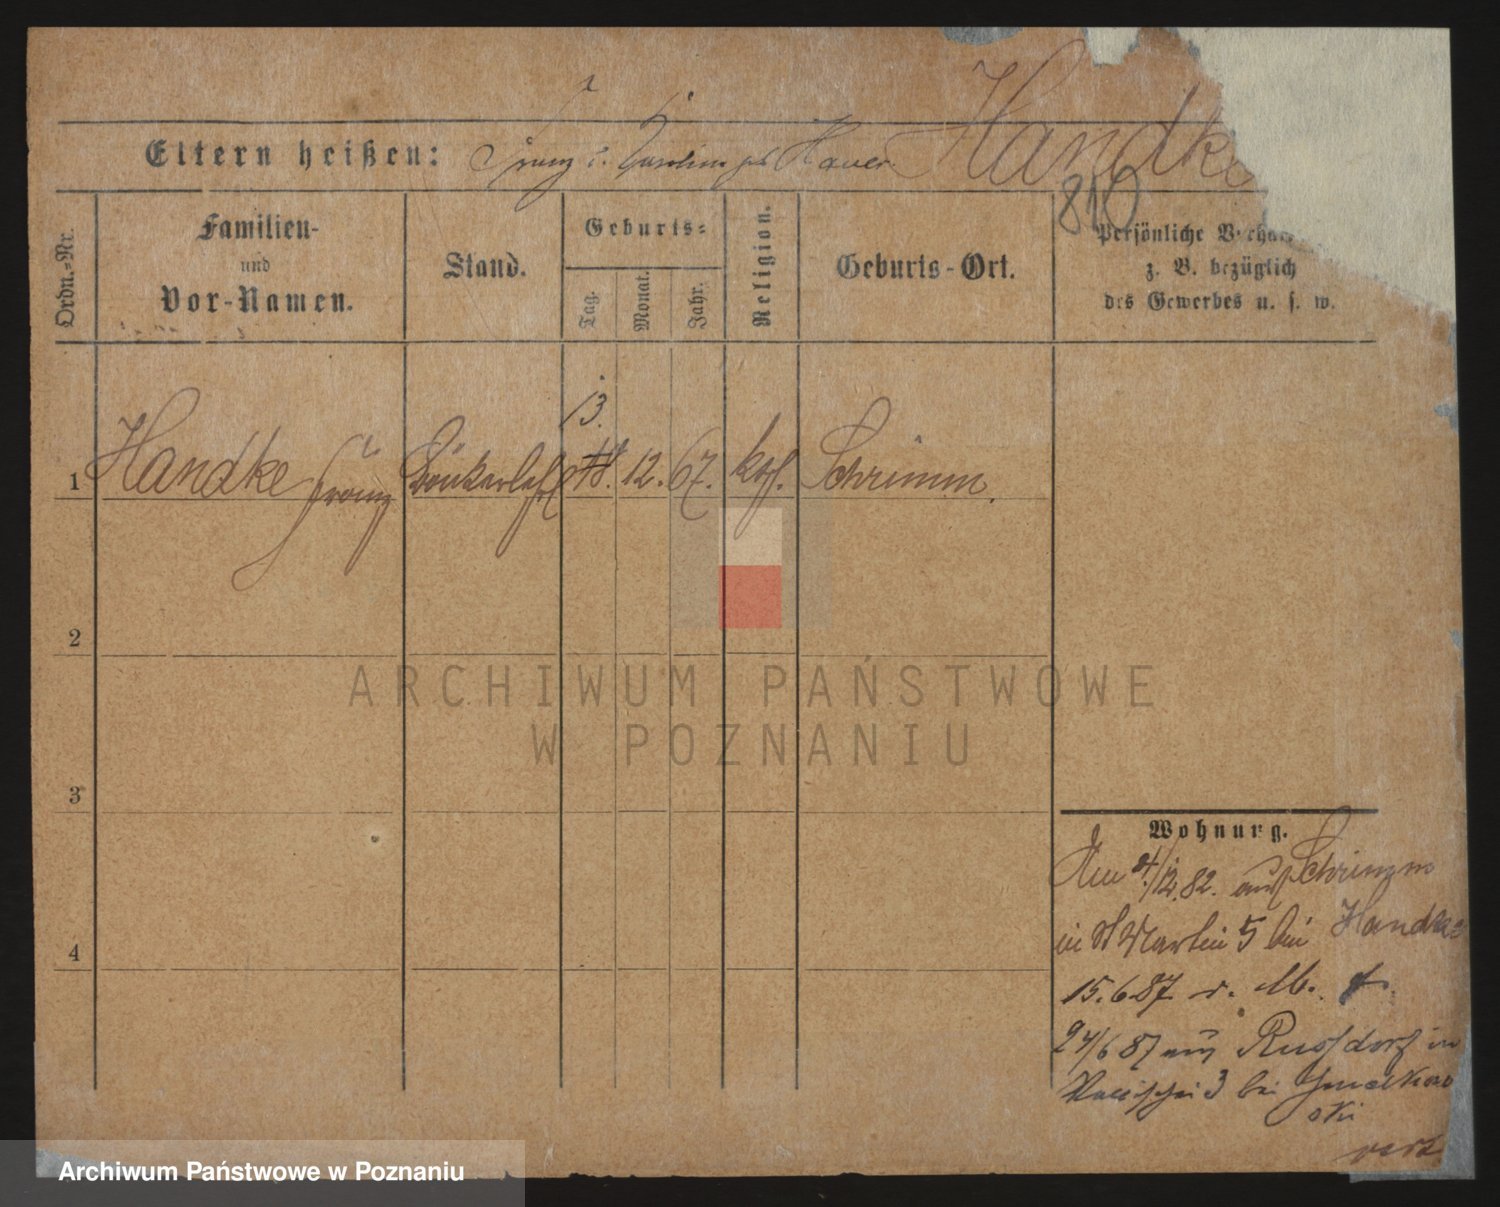 Handke
Eltern heißen: Franz u. Karolina geb Hauer.
810
Ordn.-Nr.
Familien-
und
Vor-Namen.
Stand.
Geburts-
Tag.
Monat.
Jahr.
Religion.
Geburts-Ort.
Persönliche
z. B. bezüglich
des Gewerbes u. s. w.
13.
1 Handke Franz 12. 67. kth. Schrimm.
2
3
4
ARCHIWUM PAŃSTWOWE
W POZNANIU
Wohnung.
12. 82. aus Schrimm
in St Martin 5 bei Handke
15.6.87
24/6 87 aus Russdorf in
3 bei
Archiwum Państwowe w Poznaniu